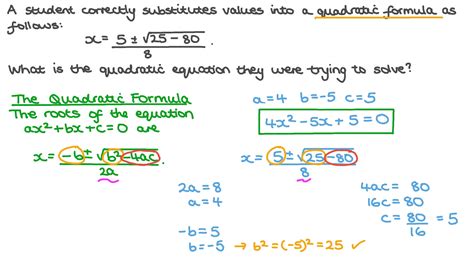 A student correctly substitutes values into a quadratic formula as
follows:
x = (5 ± √(25 - 80)) / 8 .
What is the quadratic equation they were trying to solve?
The Quadratic Formula
The roots of the equation
ax² + bx + c = 0 are
x = (-b ± √(b² - 4ac)) / 2a .
a = 4 b = -5 c = 5
4x² - 5x + 5 = 0
x = (5 ± √(25 - 80)) / 8
2a = 8
a = 4
-b = 5
b = -5 → b² = (-5)² = 25 ✓
4ac = 80
16c = 80
c = 80/16 = 5